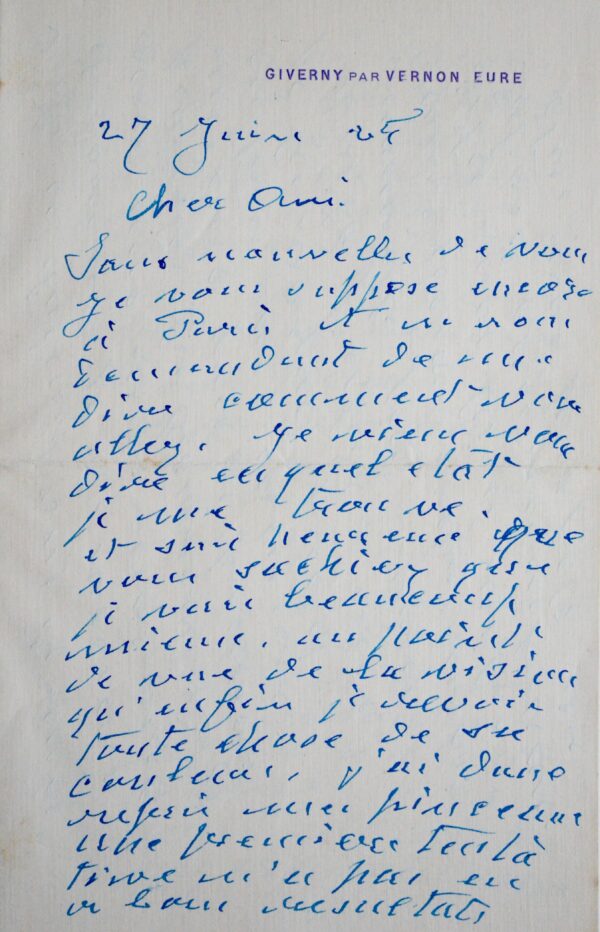 GIVERNY PAR VERNON EURE
27 Juin 25
Cher Ami.
Sans nouvelles de vous
je vous suppose encore
à Paris et en vous
demandant de me
dire comment vous
allez. Je viens vous
dire en quel etàt
je me trouve.
et suis heureux que
vous sachiez que
je vais beaucoup
mieux. au point
de vue de la vision
qu'enfin je revois
toute chose de sa
couleur, j'ai donc
repris mes pinceaux
une première tentà
tive n'a pas eu
de bons résultats